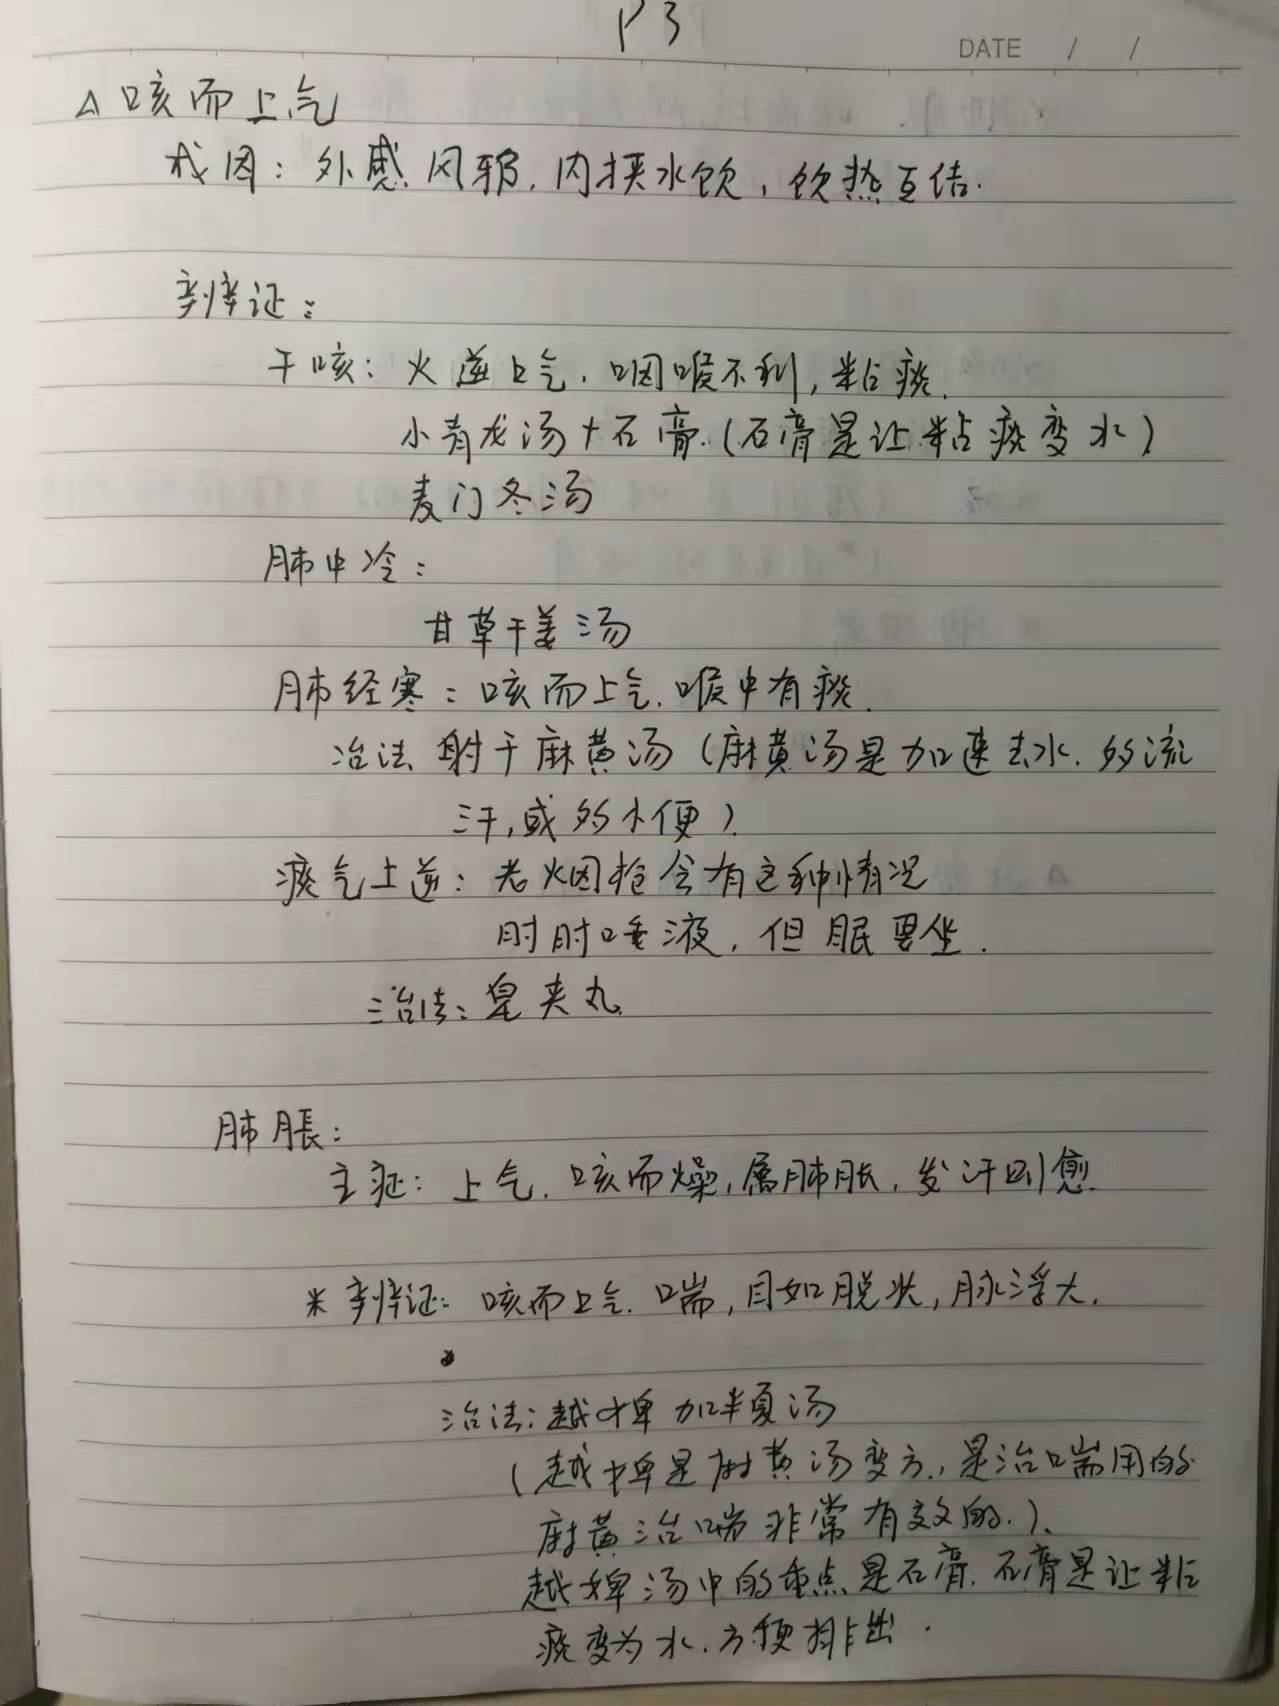 P3
DATE / /
△咳而上气
成因：外感风邪，内挟水饮，饮热互结．
辨证：
干咳：火逆上气，咽喉不利，粘痰．
小青龙汤+石膏．(石膏是让粘痰变水)
麦门冬汤
肺中冷：
甘草干姜汤
肺经寒：咳而上气．喉中有痰．
治法 射干麻黄汤（麻黄汤是加速去水．多流
汗，或多小便）．
痰气上逆：老烟枪会有这种情况
时时唾液，但眠要坐．
治法：皂夹丸．
肺脹：
主证：上气．咳而燥，属肺胀，发汗则愈．
※辨证：咳而上气．喘，目如脱状，脉浮大．
治法：越婢加半夏汤
（越婢是麻黄汤变方，是治喘用的
麻黄治喘非常有效的．）、
越婢汤中的重点是石膏．石膏是让粘
痰变为水．方便排出．